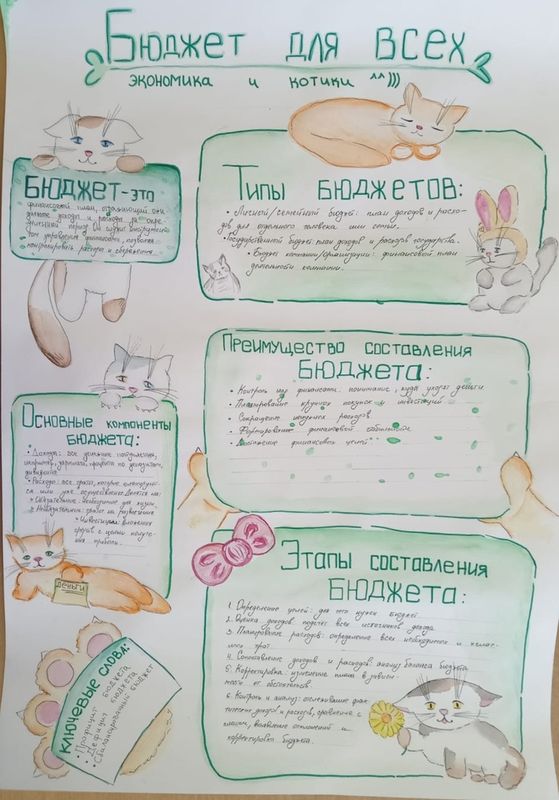 Бюджет для всех
экономика и котики ^^)))
Бюджет-это
финансовый план, отражающий
доходы и расходы за опре-
деленный период. Он служит инструмен-
том управления финансами, позволяя
контролировать расходы и сбережения.
Типы бюджетов:
• Личный/семейный бюджет: план доходов и расхо-
дов для отдельного человека или семьи.
• Государственный бюджет: план доходов и расходов государства.
• Бюджет компании/организации: финансовый план
деятельности компании.
Преимущество составления
бюджета:
• Контроль над финансами: понимание, куда уходят деньги
• Планирование крупных покупок и инвестиций
• Сокращение ненужных расходов.
• Формирование финансовой стабильности
• Достижение финансовых целей
Основные компоненты
бюджета:
• Доходы: все денежные поступления,
например, зарплата, проценты по депозитам,
дивиденды.
• Расходы: все траты, которые
или уже осуществлены. Делятся на:
• Обязательные: необходимые для жизни.
• Необязательные: траты на развлечения
• Инвестиции: вложения
средств с целью получе-
ния прибыли.
деньги
Этапы составления
бюджета:
1. Определение целей: для чего нужен бюджет
2. Оценка доходов: подсчет всех источников дохода
3. Планирование расходов: определение всех необходимых и желае-
мых трат
4. Сопоставление доходов и расходов: анализ баланса бюджета
5. Корректировка: изменение плана в зависи-
мости от обстоятельств
6. Контроль и анализ: отслеживание фак-
тических доходов и расходов, сравнение с
планом, выявление отклонений и
корректировка бюджета.
Ключевые слова:
• Профицит бюджета
• Дефицит бюджета
• Сбалансированный бюджет